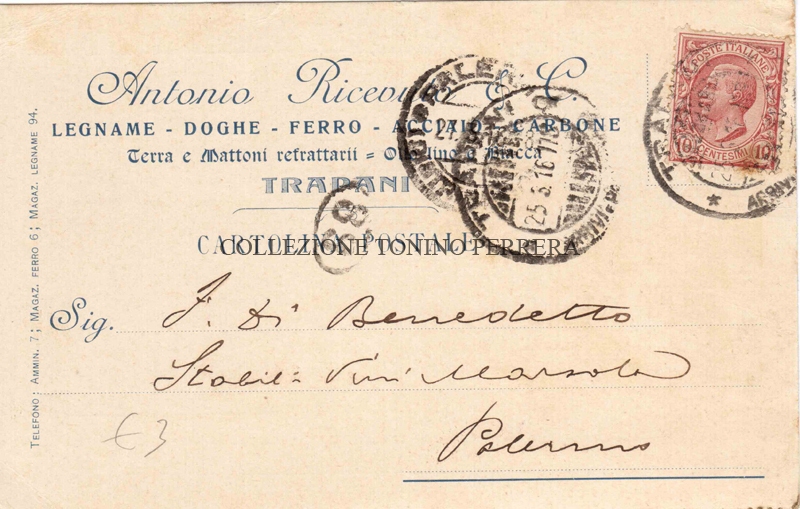 Antonio Ricevuto & C.
LEGNAME - DOGHE - FERRO - ACCIAIO - CARBONE
Terra e Mattoni refrattarii = Olio lino e Biacca
TRAPANI
CARTOLINA POSTALE
COLLEZIONE TONINO PERRERA
Sig. F. Di Benedetto
Stabil: Vini Marsala
Palermo
TELEFONO: AMMIN. 7; MAGAZ. FERRO 6; MAGAZ. LEGNAME 94.
POSTE ITALIANE
10 CENTESIMI 10
25.3.16
68
€3